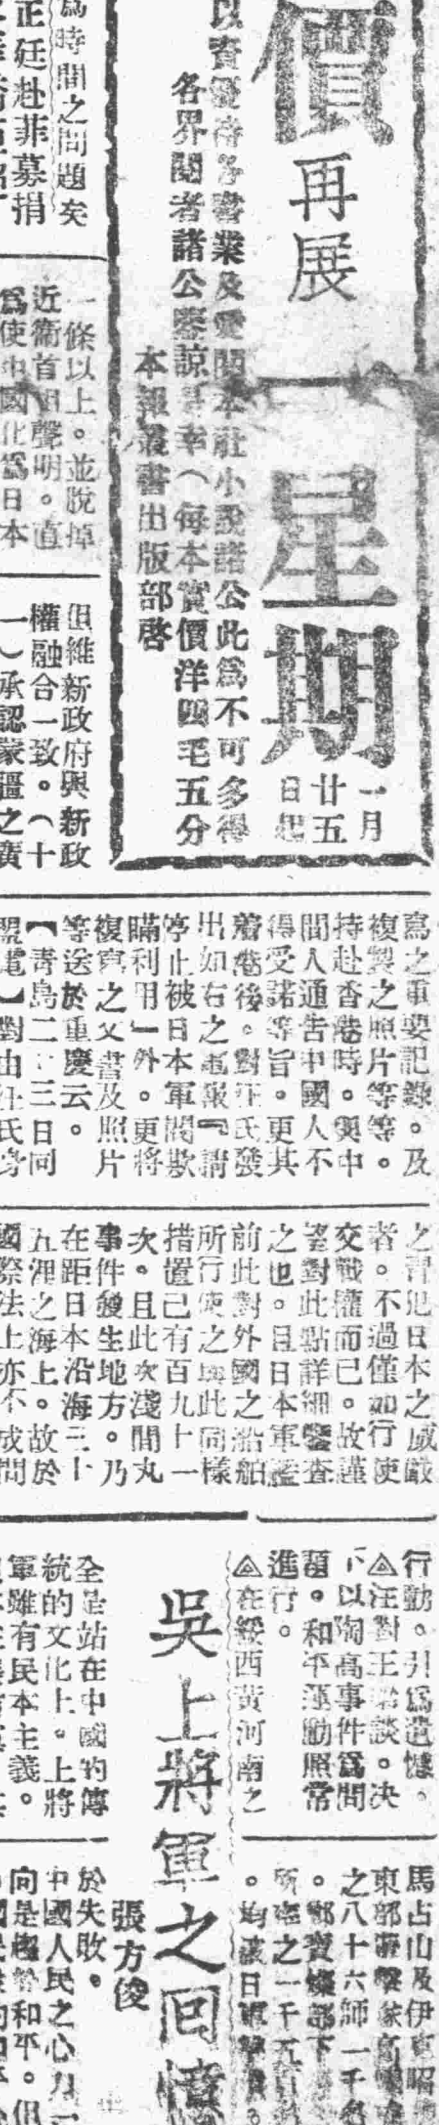 價再展一星期
一月
廿五
日起
以資優待各書業及愛閱本社小說諸公此爲不可多得
各界閱者諸公鑒諒是幸（每本實價洋四毛五分
本報叢書出版部啓
爲時間之問題矣
正廷赴菲募捐
一條以上。並脫掉
近衞首相聲明。直
爲使中國化爲日本
但維新政府與新政
權融合一致。（十
一）承認蒙疆之廣
寫之重要記錄。及
複製之照片等等。
持赴香港時。與中
間人通告中國人不
得受諾等旨。更其
着港後。對汪氏發
出如右之電報『請
停止被日本軍閥欺
瞞利用』外。更將
複寫之文書及照片
等送於重慶云。
【靑島二十三日同
盟電】對由汪氏身
之冒犯日本之威嚴
者。不過僅如行使
交戰權而已。故謹
望對此點詳細鑒査
之也。且日本軍艦
前此對外國之船舶
所行使之與此同樣
措置已有百九十一
次。且此次淺間丸
事件發生地方。乃
在距日本沿海三十
五浬之海上。故於
國際法上亦不成問
行動。引爲遺憾。
△汪對王君談。决
下以陶高事件爲問
題。和平運動照常
進行。
△在綏西黃河南之
馬占山及伊克昭
東部游擊
之八十六師一千
。鄔寶
之一千五百
吳上將軍之回憶
張方俊
全是站在中國的傳
統的文化上。上將
軍雖有民本主義。
於失敗。
中國人民之心力一
向是趨於和平。但